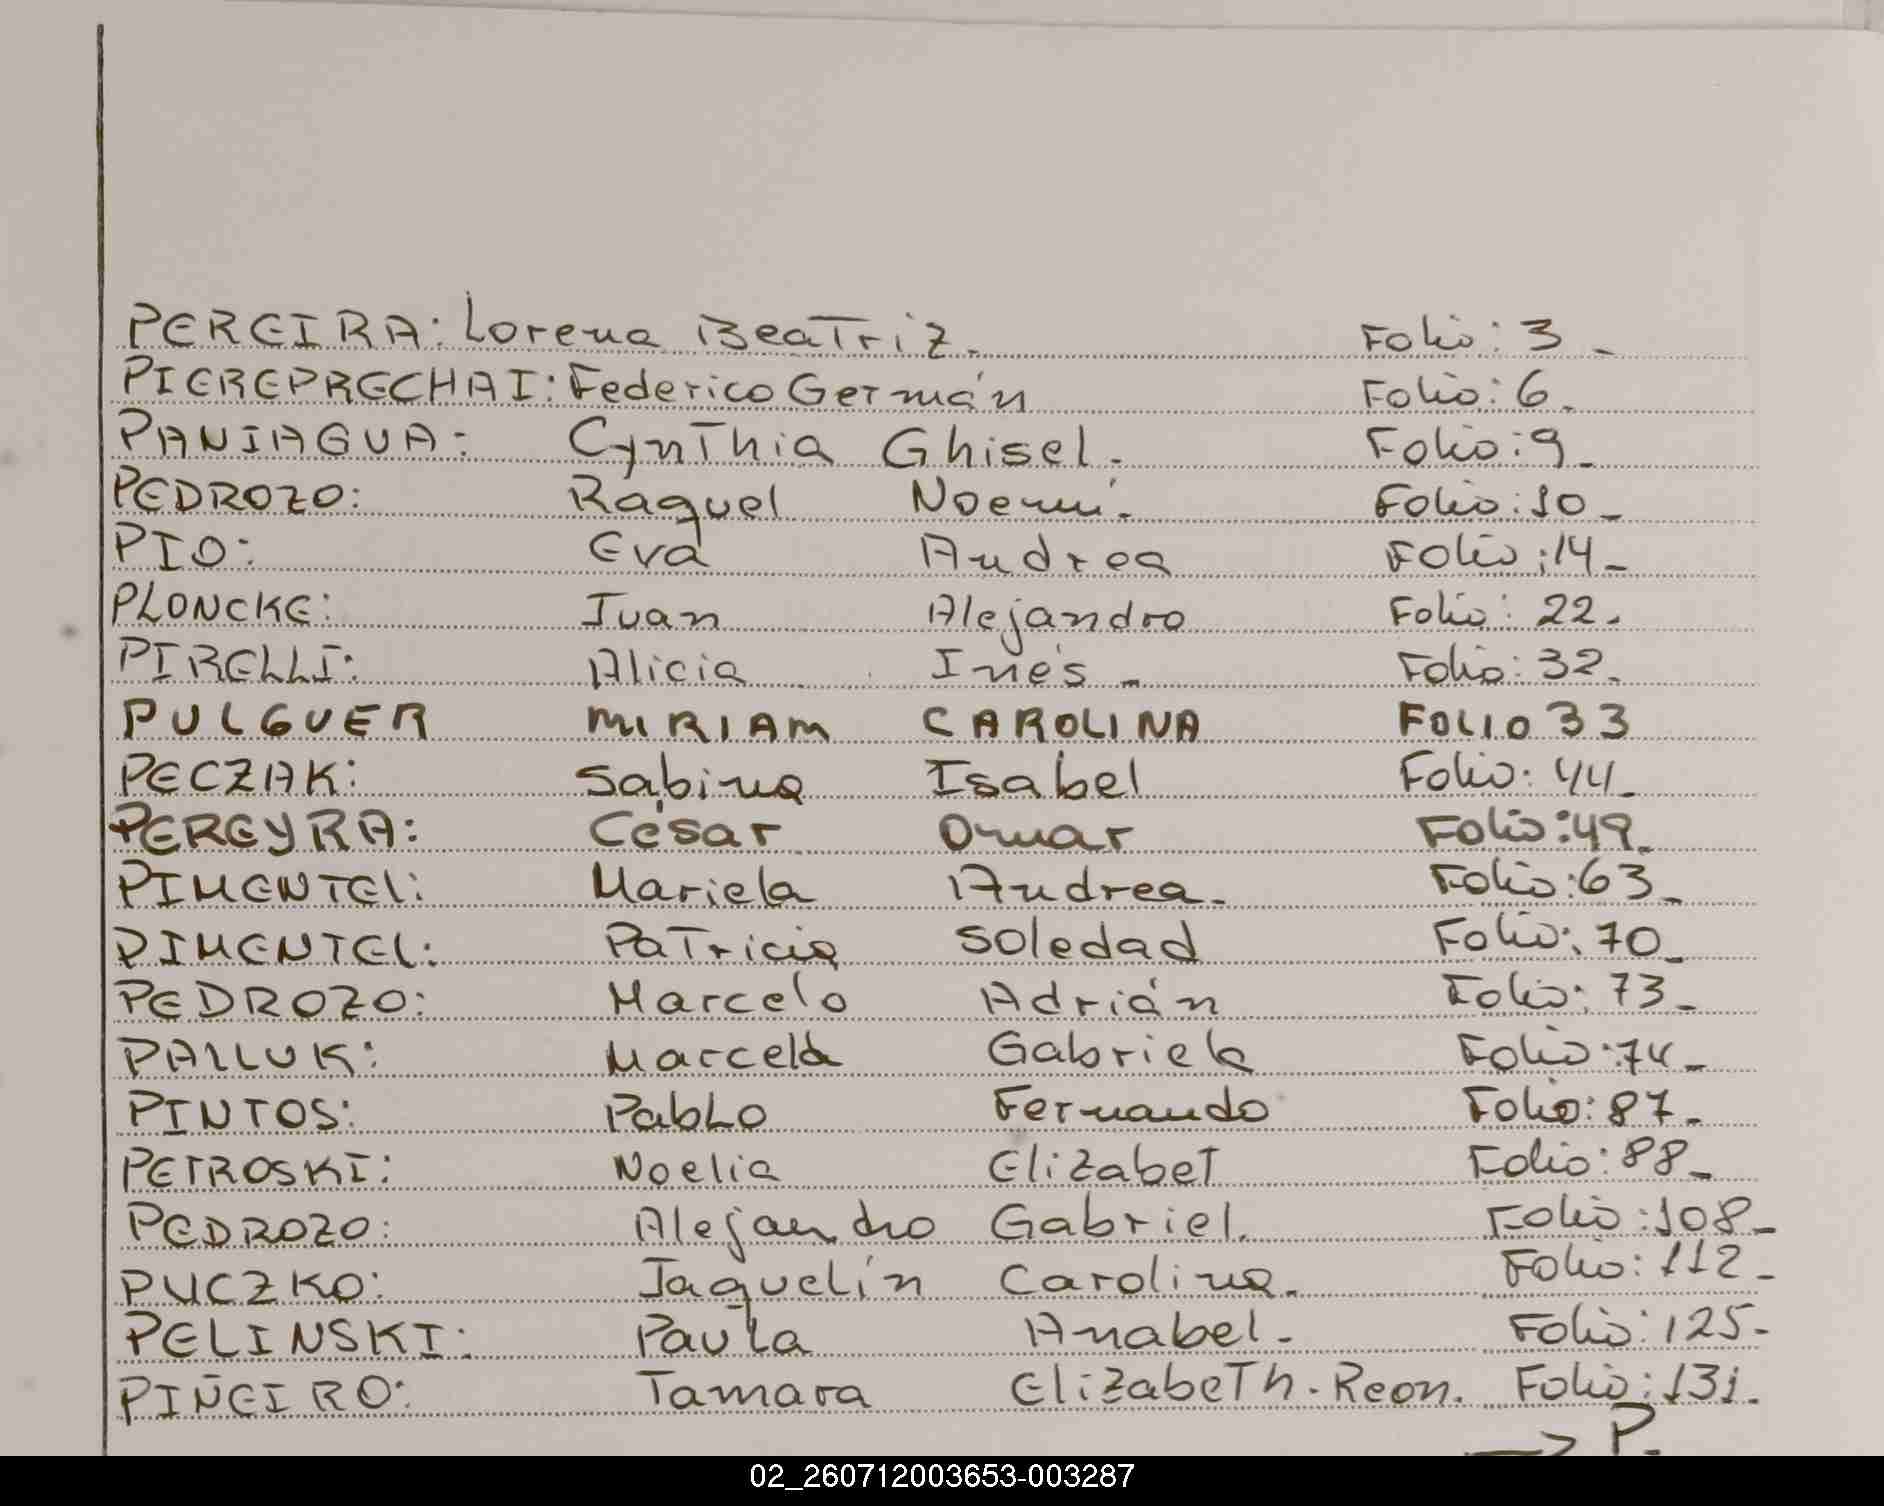 PEREIRA: Lorena Beatriz. Folio: 3_
PIEREPRECHAI: Federico Germán Folio: 6_
PANIAGUA: Cynthia Ghisel. Folio: 9_
PEDROZO: Raquel Noemí. Folio: 10_
PIO: Eva Andrea Folio: 14_
PLONCKE: Juan Alejandro Folio: 22.
PIRELLI: Alicia Inés_ Folio: 32.
PULGUER MIRIAM CAROLINA FOLIO 33
PECZAK: Sabina Isabel Folio: 44_
PEREYRA: César Omar Folio: 49_
PIMENTEL: Mariela Andrea. Folio: 63_
PIMENTEL: Patricia Soledad Folio: 70_
PEDROZO: Marcelo Adrián Folio: 73_
PALLUK: Marcela Gabriela Folio: 74_
PINTOS: Pablo Fernando Folio: 87_
PETROSKI: Noelia Elizabet Folio: 88_
PEDROZO: Alejandro Gabriel. Folio: 108_
PUCZKO: Jaquelín Carolina. Folio: 112_
PELINSKI: Paula Anabel. Folio: 125-
PIÑEIRO: Tamara Elizabeth. Reon. Folio: 131.
→ P.
02_260712003653-003287